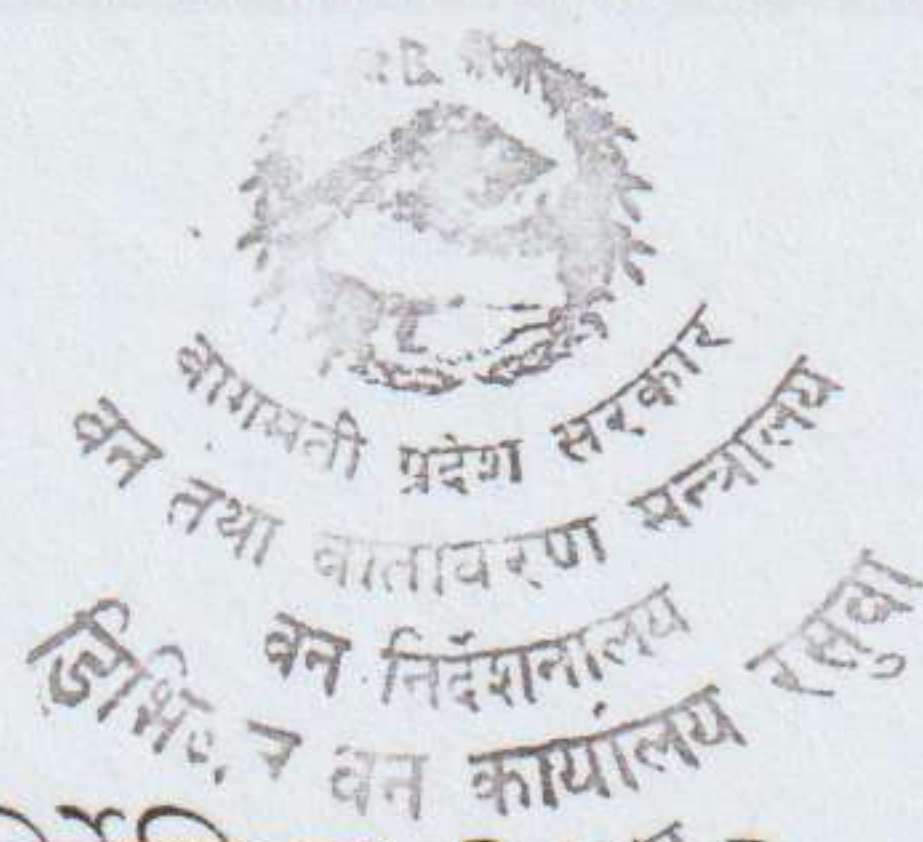 बागमती प्रदेश सरकार
वन तथा वातावरण मन्त्रालय
वन निर्देशनालय
वन कार्यालय रसुवा